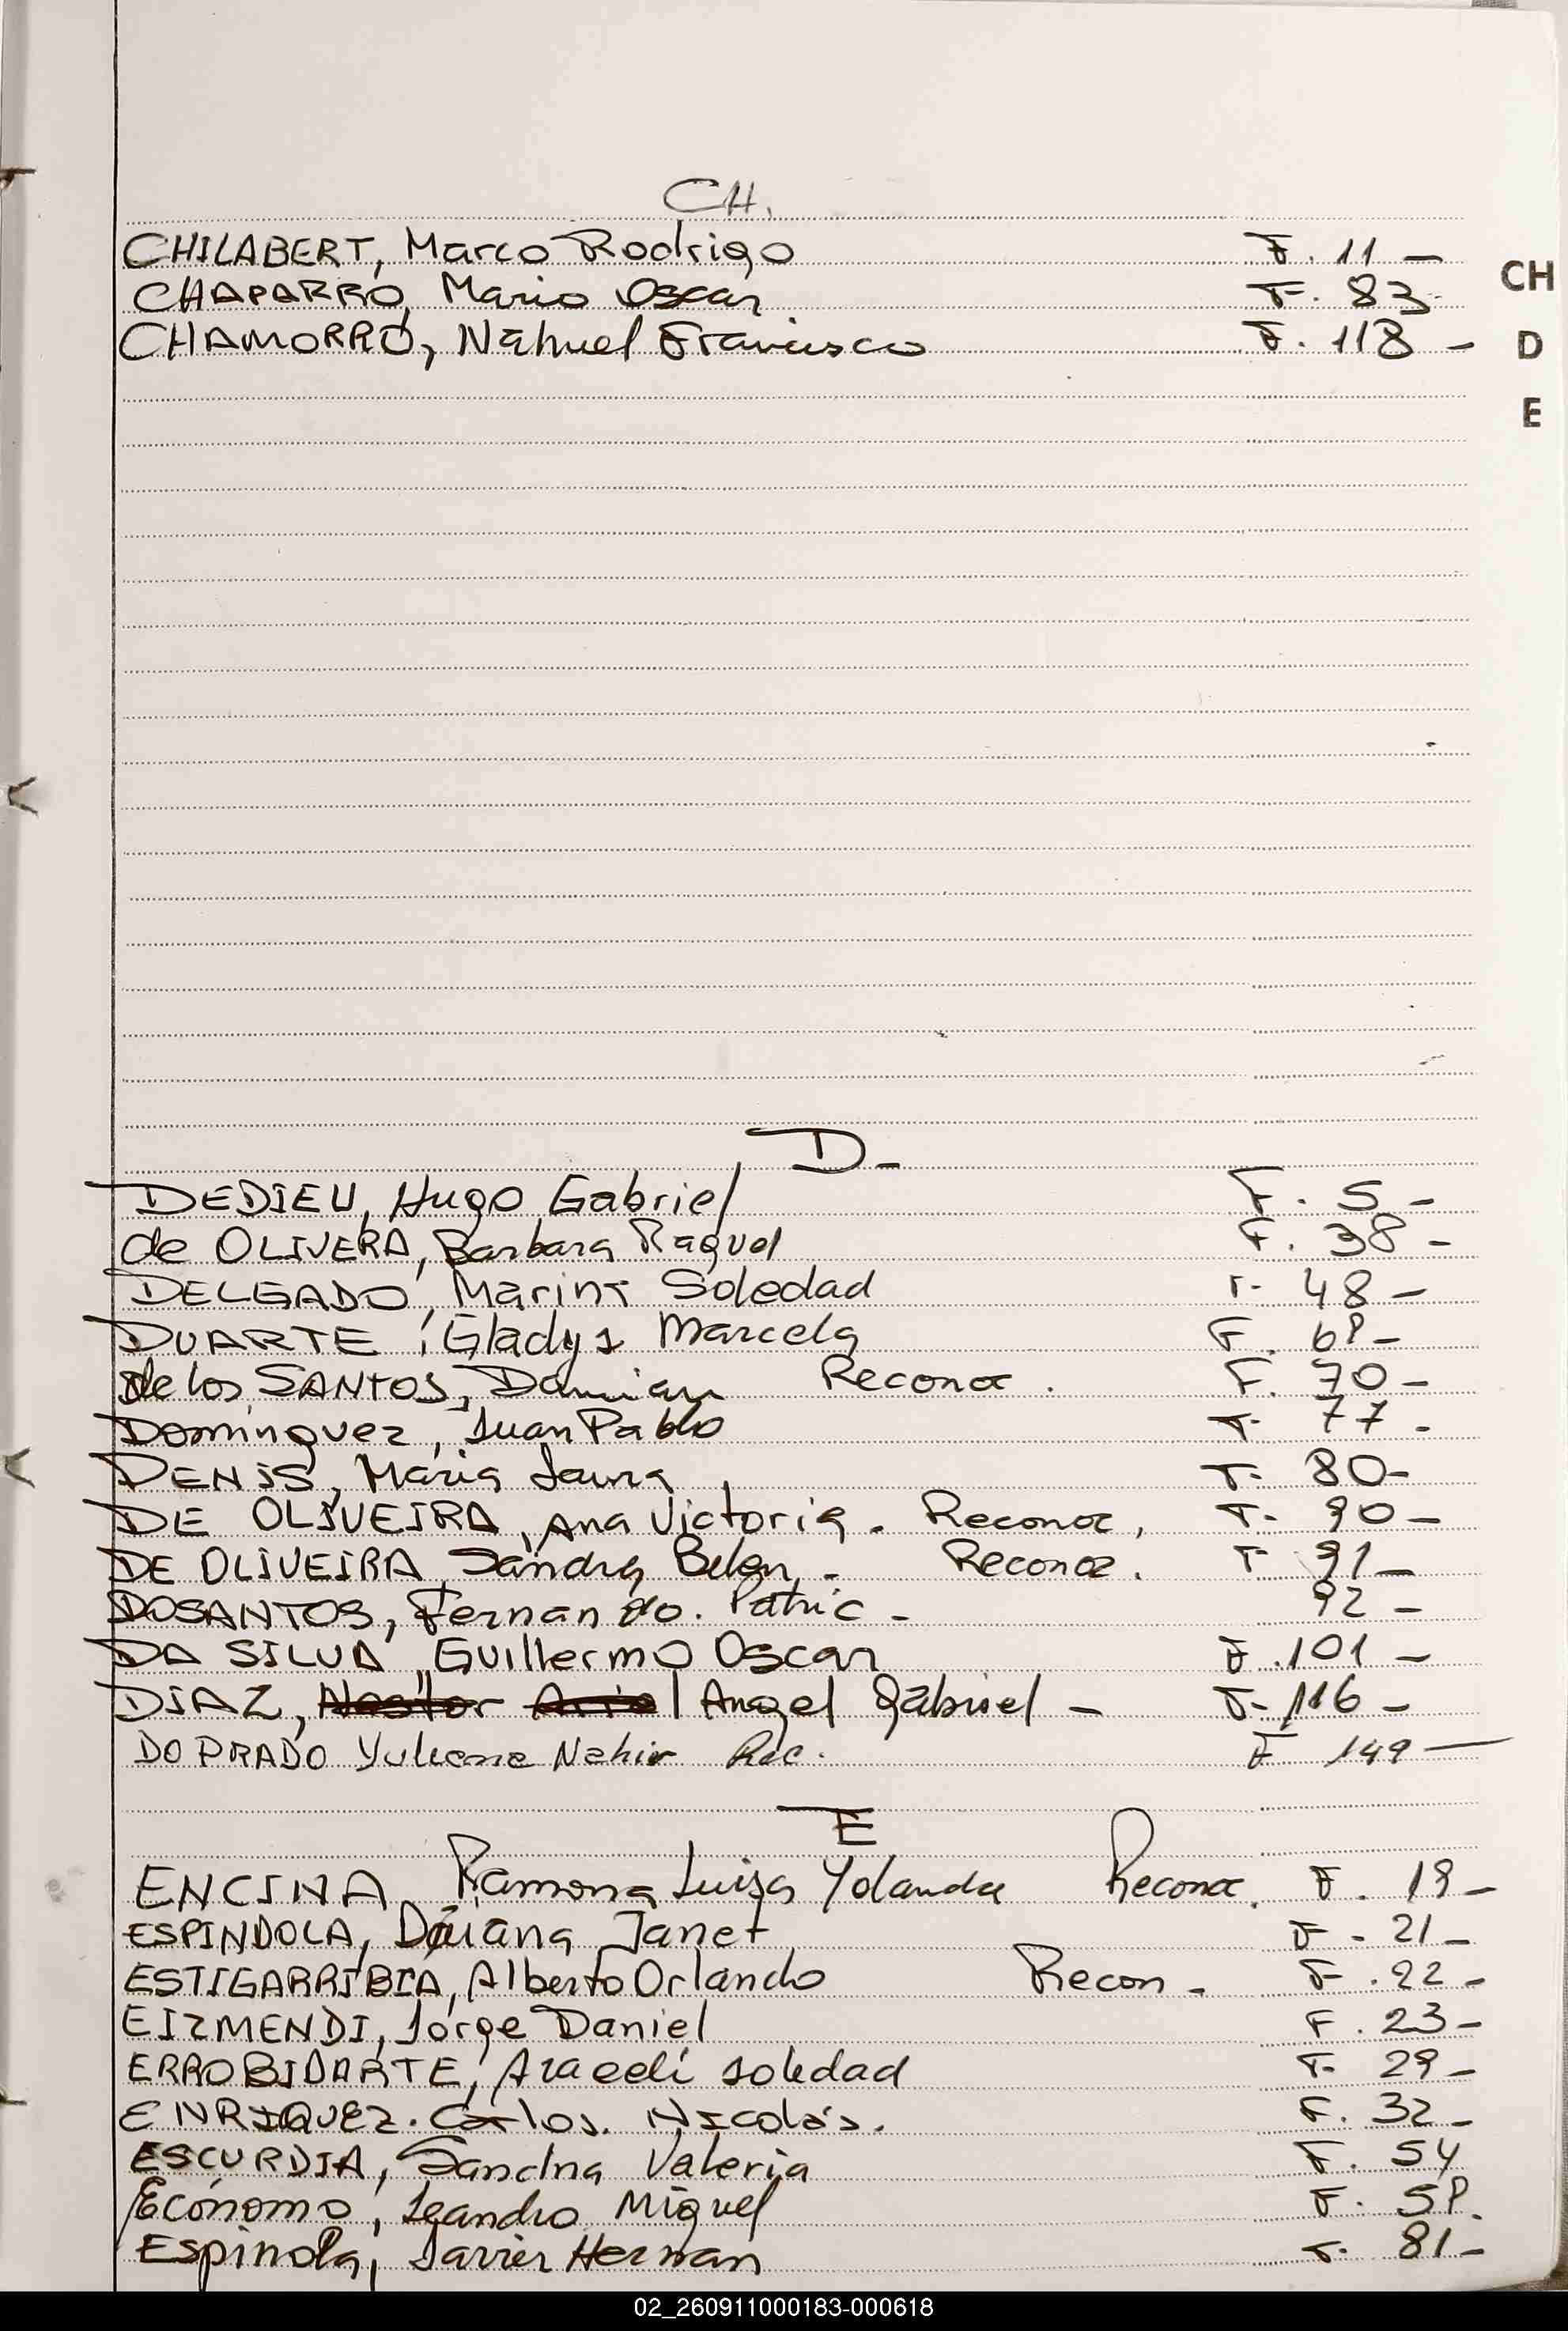 CH.
CHILABERT, Marco Rodrigo F. 11 -
CHAPARRO, Mario Oscar F. 83-
CHAMORRO, Nahuel Francisco F. 118 -
CH
D
E
D-
DEDIEU, Hugo Gabriel F. 5 -
de OLIVERA, Barbara Raquel F. 38 -
DELGADO, Marina Soledad F- 48 -
DUARTE, Gladys Marcela F. 68-
de los SANTOS, Damian Reconoc. F. 70 -
Dominguez, Juan Pablo F. 77 -
DENIS, Maria Laura F- 80-
DE OLIVEIRA, Ana Victoria. Reconoc, F- 90 -
DE OLIVEIRA, Sandra Belen - Reconoc. F- 91 -
DOSANTOS, Fernando. Patric - 92 -
DA SILVA, Guillermo Oscar F. 101 -
DIAZ, Nestor Ariel Angel Gabriel - F- 116 -
DO PRADO Yuliana Nahir Rec. F 149 -
E
ENCINA, Ramona Luisa Yolanda Reconoc. F. 19 -
ESPINDOLA, Daiana Janet F - 21 -
ESTIGARRIBIA, Alberto Orlando Recon - F- .22 -
EIZMENDI, Jorge Daniel F. 23 -
ERROBIDARTE, Araceli soledad F- 29 -
ENRIQUEZ. Carlos. Nicolás. F. 32 -
ESCURDIA, Sandra Valeria F. 54
Ecónomo, Leandro Miguel F. 58.
Espinola, Javier Hernan F. 81 -
02_260911000183-000618